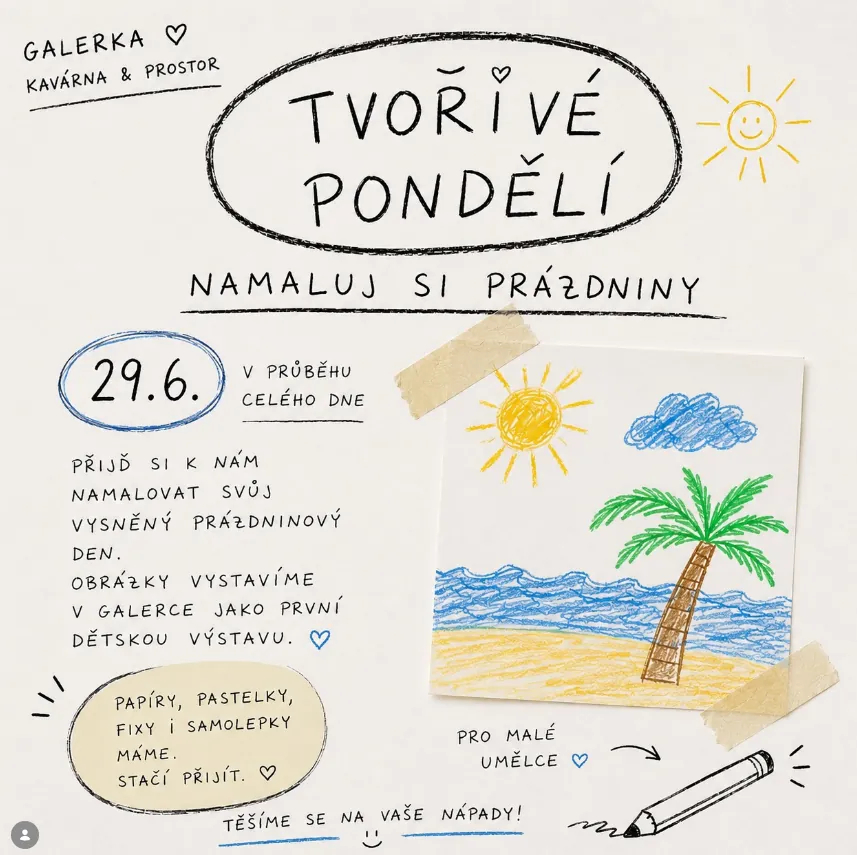 GALERKA ♡
KAVÁRNA & PROSTOR
TVOŘIVÉ
PONDĚLÍ
NAMALUJ SI PRÁZDNINY
29.6.
V PRŮBĚHU
CELÉHO DNE
PŘIJĎ SI K NÁM
NAMALOVAT SVŮJ
VYSNĚNÝ PRÁZDNINOVÝ
DEN.
OBRÁZKY VYSTAVÍME
V GALERCE JAKO PRVNÍ
DĚTSKOU VÝSTAVU. ♡
PAPÍRY, PASTELKY,
FIXY i SAMOLEPKY
MÁME.
STAČÍ PŘIJÍT. ♡
PRO MALÉ
UMĚLCE ♡
TĚŠÍME SE NA VAŠE NÁPADY!